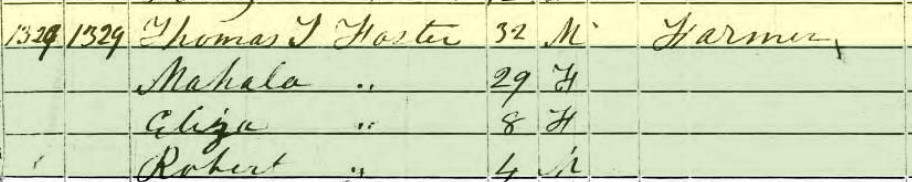 1329 1329 Thomas T Foster 32 M Farmer
Mahala " 29 F
Eliza " 8 F
Robert " 4 M